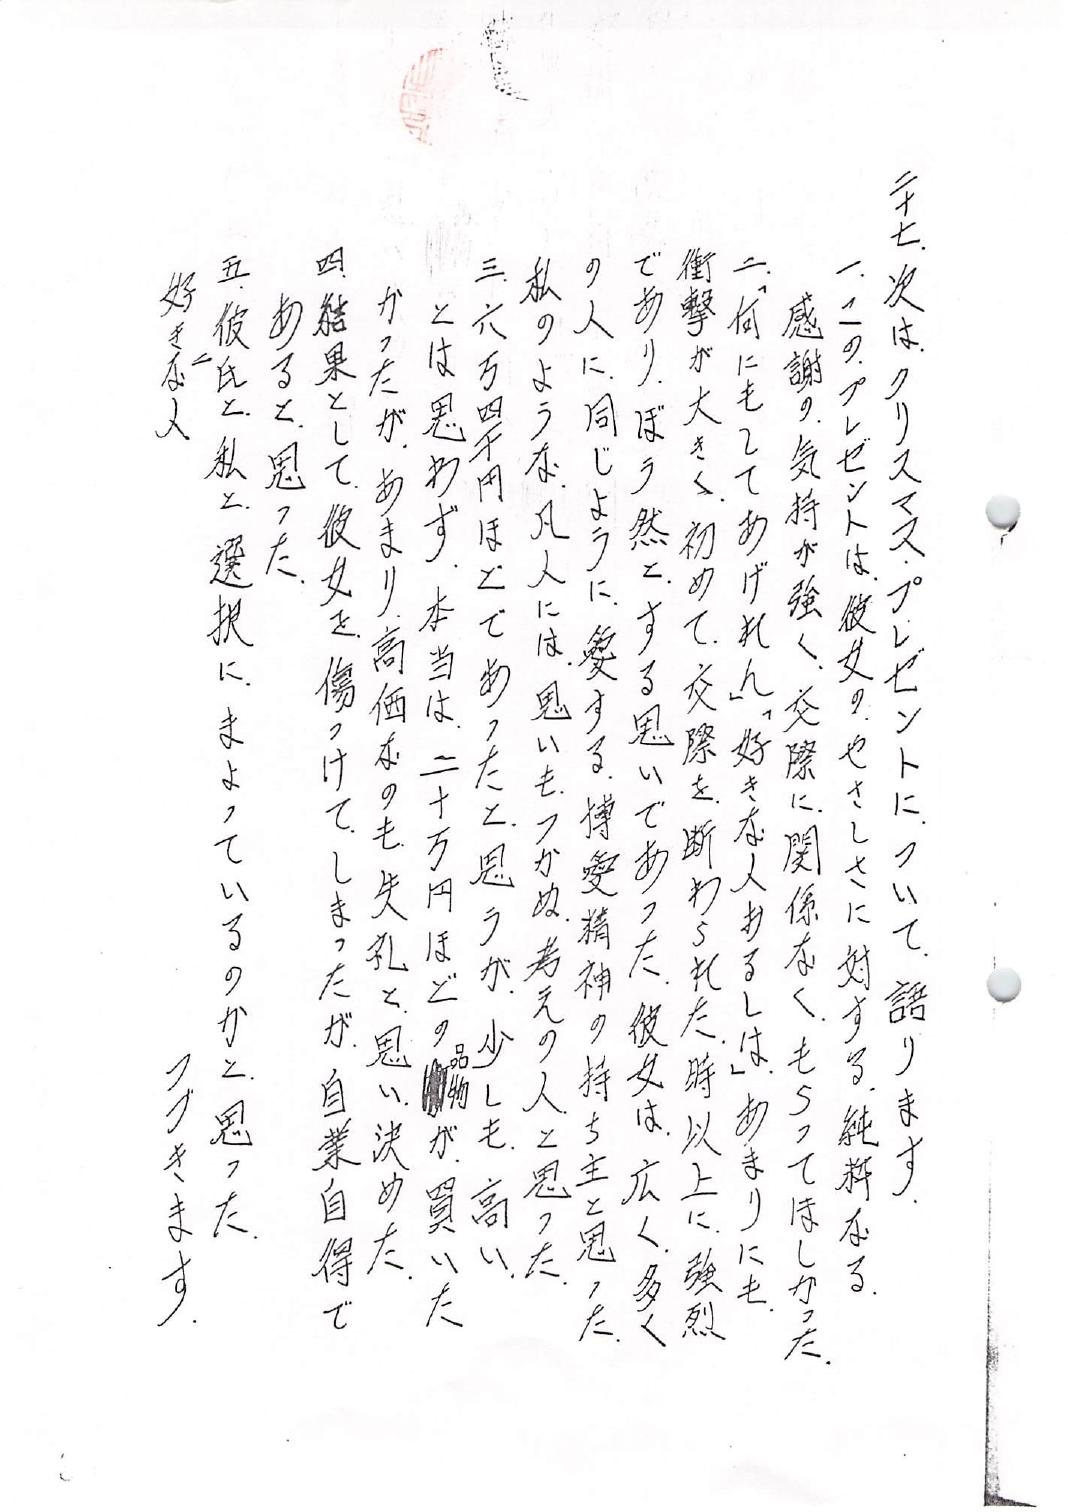 二十七、次は、クリスマス・プレゼントについて、語ります。
一、このプレゼントは、彼女の、やさしさに対する、純粋なる、
感謝の、気持が強く、交際に、関係なく、もらってほしかった。
二、「何にもしてあげれん」「好きな人あるしは」あまりにも、
衝撃が大きく、初めて、交際を、断わられた、時以上に、強烈
であり、ぼう然と、する思いであった、彼女は、広く、多く
の人に、同じように、愛する、博愛精神の持ち主と思った、
私のような、凡人には、思いもつかぬ、考えの人と思った、
三、六万四千円ほどであったと、思うが、少しも、高い、
とは思わず、本当は、二十万円ほどの品物が、買いた
かったが、あまり、高価なのも、失礼と、思い、決めた、
四、結果として、彼女を、傷つけて、しまったが、自業自得で
あると、思った、
五、彼氏と、私と、選択に、まよっているのかと、思った、
好きな人
つづきます、